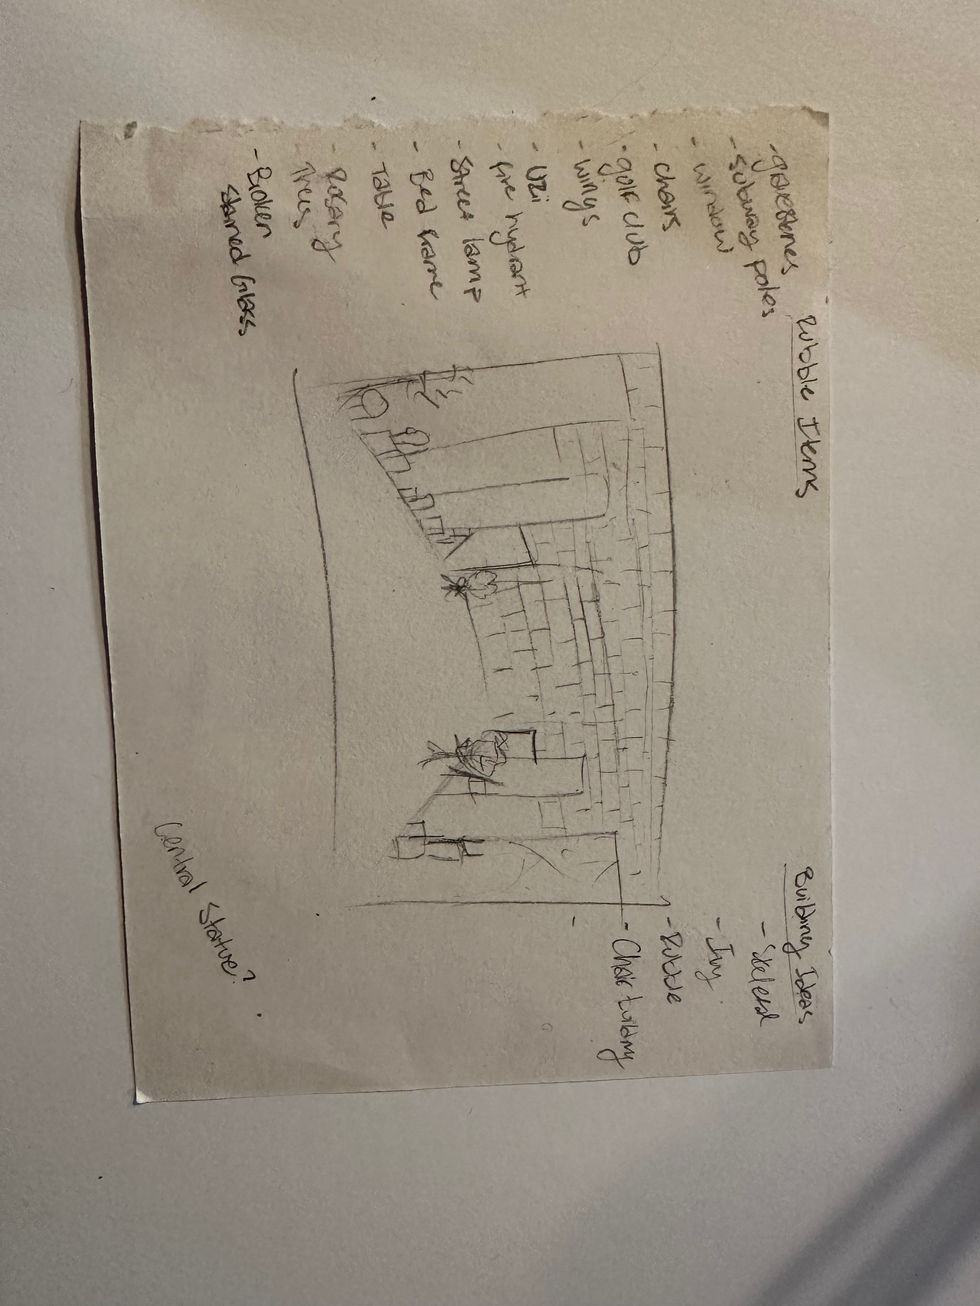 Rubble Items
- gravestones
- subway poles
- window
- chairs
- golf club
- wings
- Uzi
- fire hydrant
- Street lamp
- Bed frame
- Table
- Rosary
- Trees
- Broken
Stained Glass
Building Ideas
- Skeletal
- Ivy
- Rubble
- Chair building
-
Central Statue?